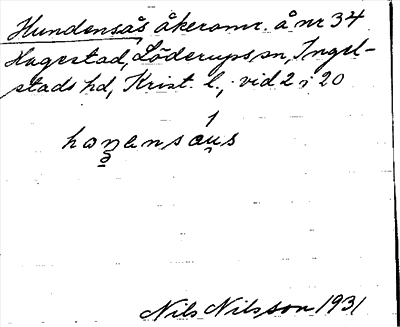 Hundensås åkeromr. å nr 34
Hagestad, Löderups sn, Ingel-
stads hd, Krist. l., vid 2 i 20
1
Nils Nilsson 1931